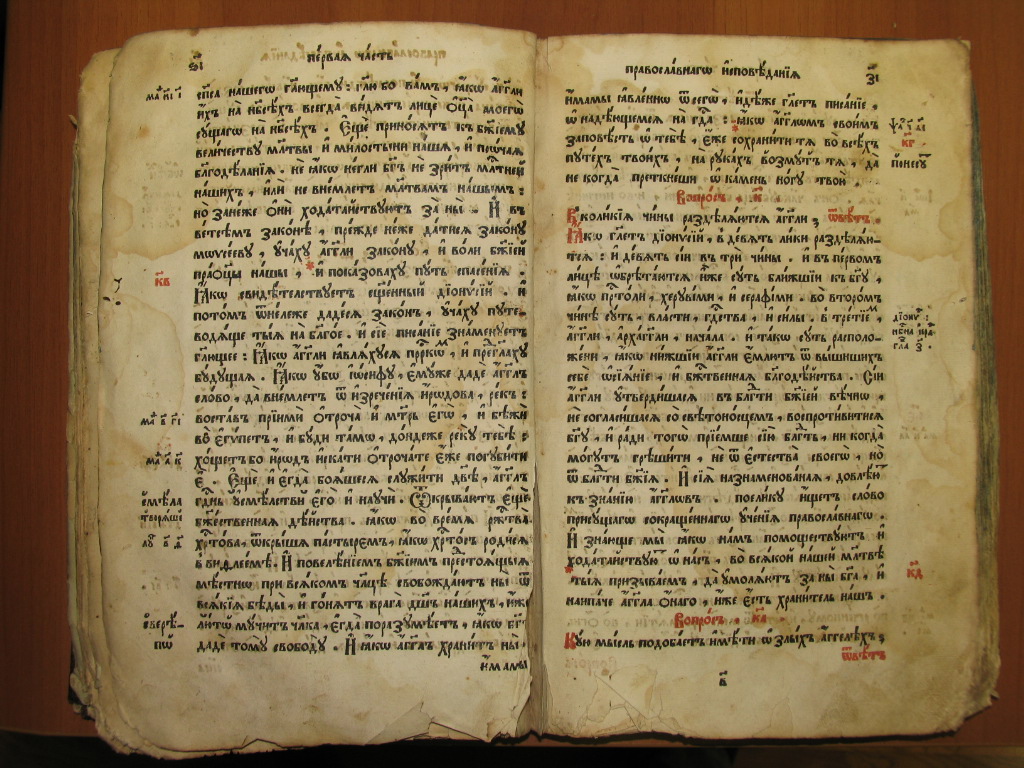 ѕ҃і первая часть
спса нашегѡ гл҃ющему : гл҃ю бо вамъ, ꙗкѡ агг҃ли
ихъ на нб҃сѣхъ всегда видѧтъ лице ѻц҃а моегѡ
сущагѡ на нб҃сѣхъ . Еще приносѧтъ къ бж҃їему
величеству мл҃твы и милостынѧ нашѧ, и прочаѧ
благодѣланїѧ . не ꙗкѡ негли бг҃ъ не зритъ мл҃тней
нашихъ, или не внемлетъ мл҃твамъ нашымъ :
но занеже ѻни ходатайствуютъ за ны . И въ
ветсѣмъ законѣ, прежде неже датисѧ закону
мѡѵсееву, учаху агг҃ли закону, и воли бж҃їей
праѻцы нашы, * и показоваху путь спасенїѧ .
Ꙗкѡ свидѣтелствуетъ сщ҃енный дїонѵсїй . и
потомъ ѿнележе дадесѧ законъ, учаху путе-
водѧще тыѧ на благое . и сїе писанїе знаменуетъ
гл҃ющее : Ꙗкѡ агг҃ли ꙗвлѧхусѧ прⷪ҇ркѡм, и предгл҃аху
будущаѧ . Ꙗкѡ убѡ іѡсифу, емуже даде агг҃лъ
слово, да внемлетъ ѿ изреченїѧ иродова, рекъ :
воставъ прїими ѻтроча и мт҃рь егѡ, и бѣжи
во егѵпетъ, и буди тамѡ, дондеже реку тебѣ :
хощетъ бо иродъ искати ѻтрочате еже погубити
е . Еще и егда боѧщесѧ служити двѣ, агг҃лъ
гд҃нь усмѣлстви его и научи . Ѿкрываютъ еще
бжественнаѧ дѣйства . ꙗкѡ во времѧ ржтва
хрⷭ҇това, ѿкрышѧ пастыремъ, ꙗкѡ хрⷭ҇тосъ родисѧ
в виѳлеемѣ . И повелѣнїемъ бж҃їимъ престоѧщыѧ
мѣстнѡ при всѧкомъ чл҃цѣ свобождаютъ ны ѿ
всѧкїѧ бѣды, и гонѧтъ врага дш҃ъ нашихъ, иже
лютѡ мучитъ чл҃ка, егда поразумѣетъ, ꙗкѡ бг҃ъ
даде тому свободу . И ꙗкѡ агг҃лъ хранитъ ны
имамы
кв
православнагѡ исповѣданїѧ з҃і
имамы ꙗвленнѡ ѿ сегѡ, идѣже гл҃етъ писанїе,
ѡ надѣющемсѧ на гд҃а : ꙗкѡ агг҃лѡмъ своимъ
заповѣсть ѡ тебѣ, еже сохранити тѧ во всѣхъ
путехъ твоихъ, на рукахъ возмутъ тѧ, да
не когда преткнеши ѡ камень ногу твою .
Вопросъ, к .
Вколикїѧ чины раздѣлѧютсѧ агг҃ли, ѿвѣтъ .
Ꙗкѡ гл҃етъ дїонѵсїй, в девѧть лики раздѣлѧю-
тсѧ : и девѧть сїи въ три чины . и в первомъ
лицѣ ѡбрѣтаютсѧ иже суть ближшїи къ бг҃у,
ꙗкѡ прⷭ҇толи, херувіми, и серафіми . во второмъ
чинѣ суть, власти, гдⷭ҇тва, и силы . в третїем,
агг҃ли, архагг҃ли, начала . и такѡ суть располо-
жени, ꙗкѡ нижшїи агг҃ли емлютъ ѿ вышшихъ
себе ѡсїѧнїе, и бжⷭ҇твеннаѧ благодѣйства . Сїи
агг҃ли утвердишасѧ въ блгⷣти бж҃їей вѣчнѡ,
не согласишасѧ со свѣтоносцемъ, воспротивитисѧ
бг҃у, и ради тогѡ прїемше сїю блгⷣть, ни когда
могутъ грѣшити, не ѿ естества своегѡ, но
ѿ блгⷣти бж҃їѧ . И сїѧ назнаменованаѧ, довлѣю
къ знанїю агг҃лѡвъ . поелику ищетъ слово
присущагѡ сокращеннагѡ ученїѧ православнагѡ .
И знающе мы ꙗкѡ намъ помоществуютъ и
ходатайствуют ѡ насъ, во всѧкой нашей мл҃твѣ
* тыѧ призываемъ, да умолѧютъ за ны бг҃а, и
наипаче агг҃ла ѻнаго, иже есть хранитель нашъ .
Вопросъ, ка .
Кую мысль подобаетъ имѣти ѡ злыхъ агг҃елѣхъ ;
ѿвѣтъ
кг
кд
в